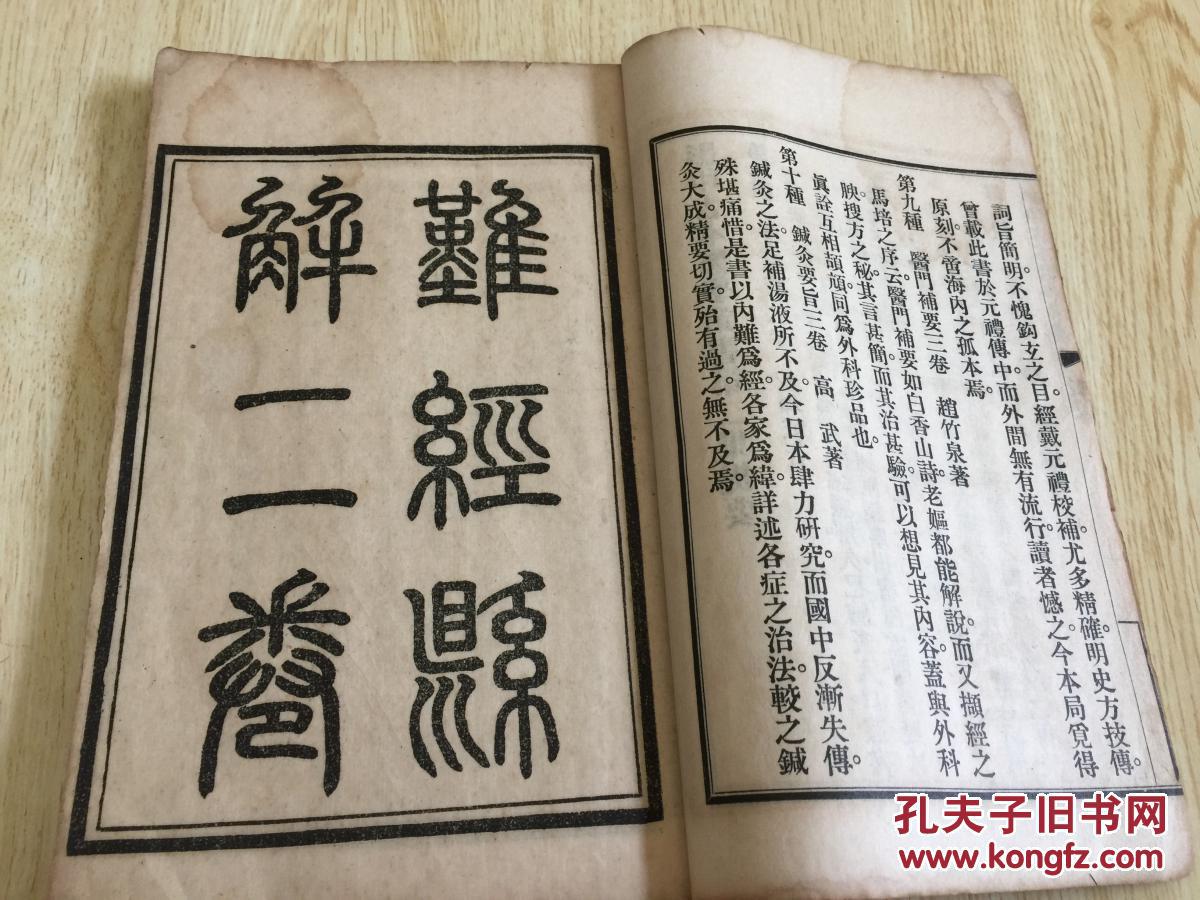 詞旨簡明。不愧鈎玄之目。經戴元禮校補。尤多精確。明史方技傳。
曾載此書於元禮傳中。而外間無有流行。讀者憾之。今本局覓得
原刻。不啻海內之孤本焉。
第九種 醫門補要三卷 趙竹泉著
馬培之序云。醫門補要如白香山詩。老嫗都能解說。而又擷經之
腴。搜方之秘。其言甚簡。而其治甚驗。可以想見其內容。蓋與外科
眞詮互相頡頏。同爲外科珍品也。
第十種 鍼灸要旨三卷 高武著
鍼灸之法。足補湯液所不及。今日本肆力研究。而國中反漸失傳。
殊堪痛惜。是書以內難爲經。各家爲緯。詳述各症之治法。較之鍼
灸大成。精要切實。殆有過之無不及焉。
難經縣
解二卷
孔夫子旧书网
www.kongfz.com